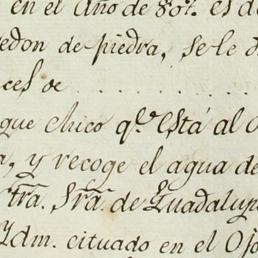 en el Año de 801. es de
redon de piedra, se le
ces de . . . . . . . . . .
que chico q.e está al O
a, y recoge el agua de
tra. Sra. de Guadalup
Ydm. cituado en el Ojo